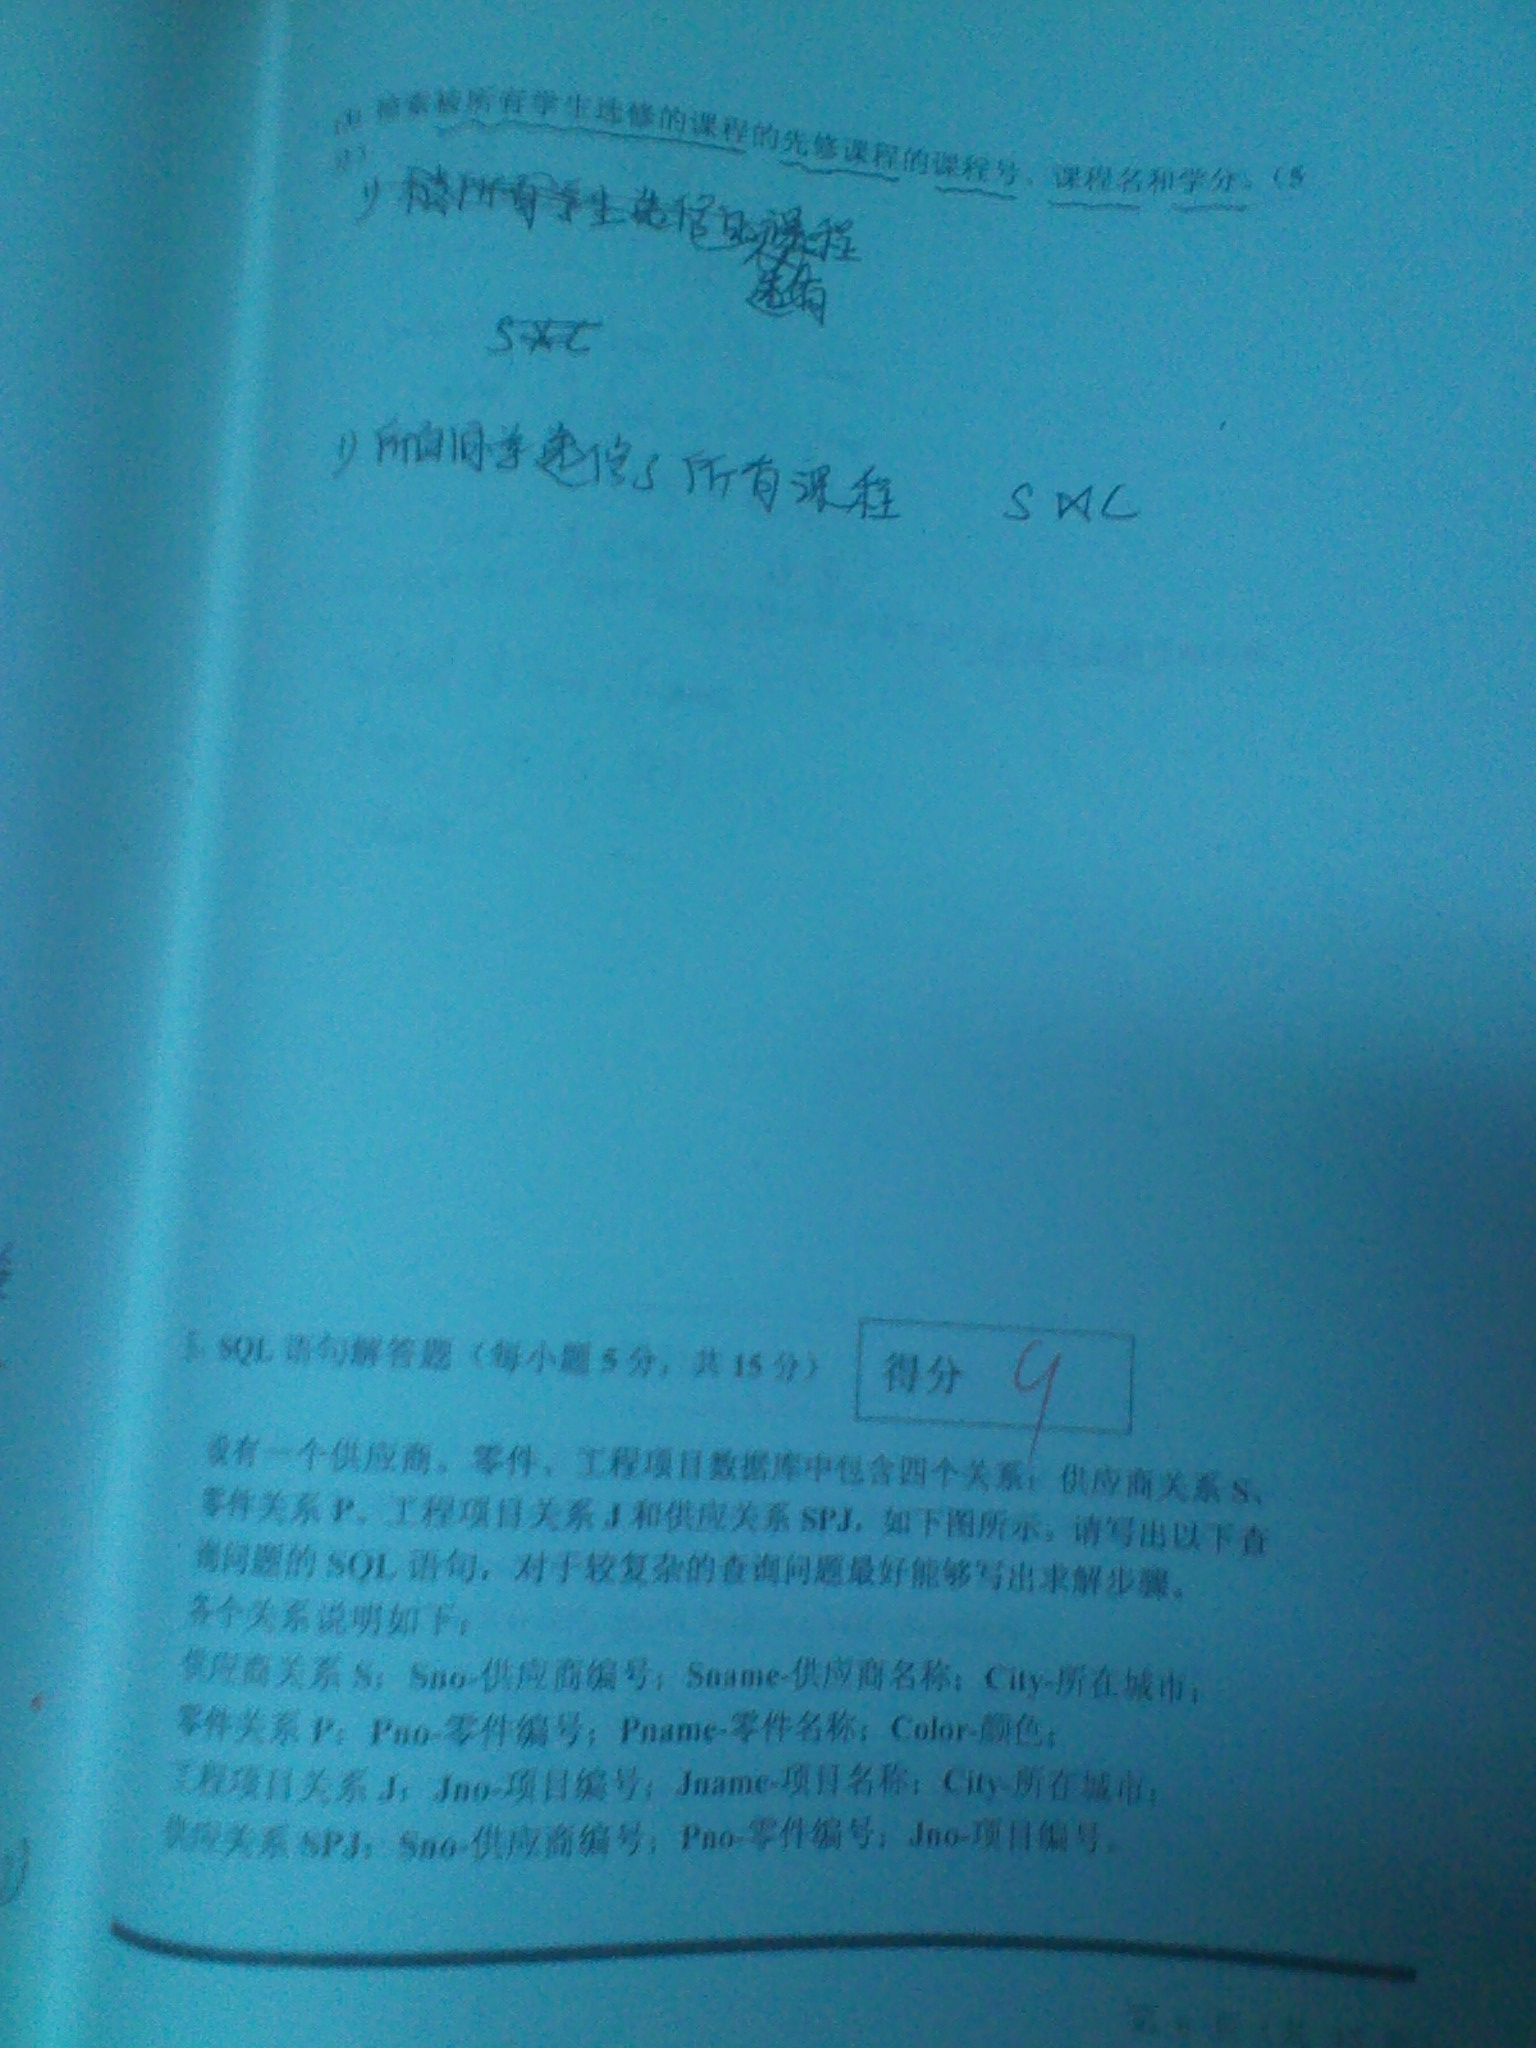 检索被所有学生选修的课程的先修课程的课程号、课程名和学分。(5
分)
1) 被所有学生选修的课程
选修
S⋈C
1) 所有同学选修了所有课程 S⋈C
SQL 语句解答题（每小题 5 分，共 15 分） 得分 9
设有一个供应商、零件、工程项目数据库中包含四个关系：供应商关系 S、
零件关系 P、工程项目关系 J 和供应关系 SPJ，如下图所示。请写出以下查
询问题的 SQL 语句，对于较复杂的查询问题最好能够写出求解步骤。
各个关系说明如下：
供应商关系 S：Sno-供应商编号；Sname-供应商名称；City-所在城市；
零件关系 P：Pno-零件编号；Pname-零件名称；Color-颜色；
工程项目关系 J：Jno-项目编号；Jname-项目名称；City-所在城市；
供应关系 SPJ：Sno-供应商编号；Pno-零件编号；Jno-项目编号。